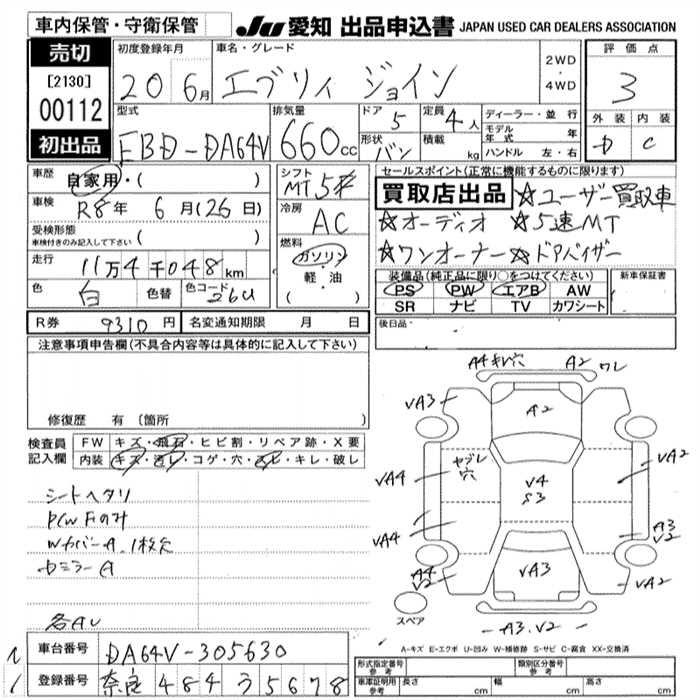 車内保管・守衛保管
JU 愛知 出品申込書 JAPAN USED CAR DEALERS ASSOCIATION
売切
[2130]
00112
初出品
初度登録年月
20 6月
車名・グレード
エブリィ ジョイン
2WD
・
4WD
評価点
3
外装 内装
D C
型式
EBD-DA64V
排気量
660cc
ドア
5
定員
4人
形状
バン
積載
kg
ディーラー・並行
モデル年式 年
ハンドル 左・右
車歴
自家用・( )
車検
R8年 6月(26日)
受検形態
車検付きのみ記入して下さい ( )
走行
11万4千048km
色
白
色替
色コード
26U
シフト
MT 5速
冷房
AC
燃料
ガソリン
軽・油
( )
セールスポイント(正常に機能するものに限ります)
買取店出品 ☆ユーザー買取車
☆オーディオ ☆5速MT
☆ワンオーナー ☆ドアバイザー
装備品(純正品に限り○をつけてください)
PS PW エアB AW
SR ナビ TV カワシート
新車保証書
後日品
R券 9310円
名変通知期限 月 日
注意事項申告欄(不具合内容等は具体的に記入して下さい)
修復歴 有 〔箇所 〕
検査員
記入欄
FW キズ・飛石・ヒビ割・リペア跡・X要
内装 キズ・汚レ・コゲ・穴・スレ・キレ・破レ
シートヘタリ
P/W Fのみ
WカバーA、1枚欠
DミラーA
各AU
A4キレ穴 A2 ワレ
VA3
A2
ヤブレ
穴
VA4
V4
S3
VA2
VA4
A3
V2
A4
V2
VA3
VA2
スペア
A3.V2
A-キズ E-エクボ U-凹み W-補修跡 S-サビ C-腐食 XX-交換済
車台番号
DA64V-305630
登録番号
奈良 484 う 5678
形式指定番号
参考
類別区分番号
参考
車庫証明用
参考
長さ cm 幅 cm 高さ cm